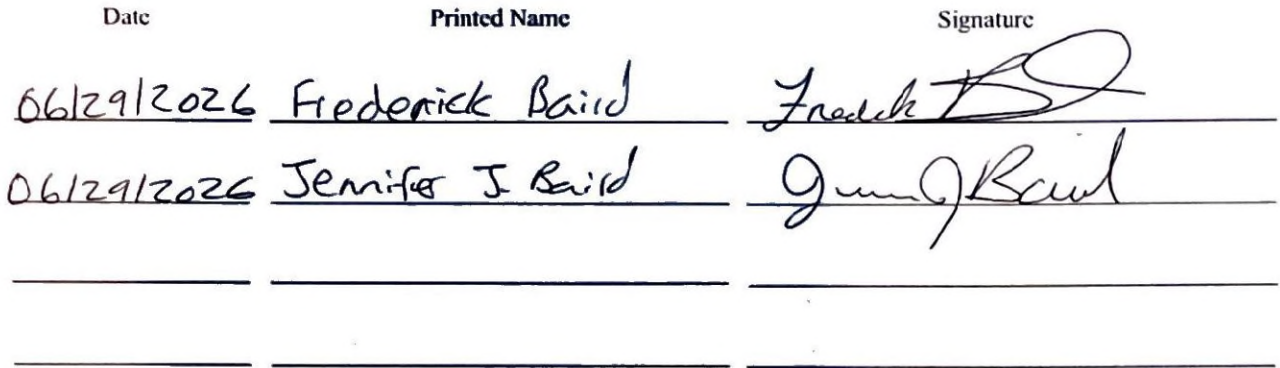 Date Printed Name Signature
06/29/2026 Frederick Baird Fredck B
06/29/2026 Jennifer J. Baird J Baird